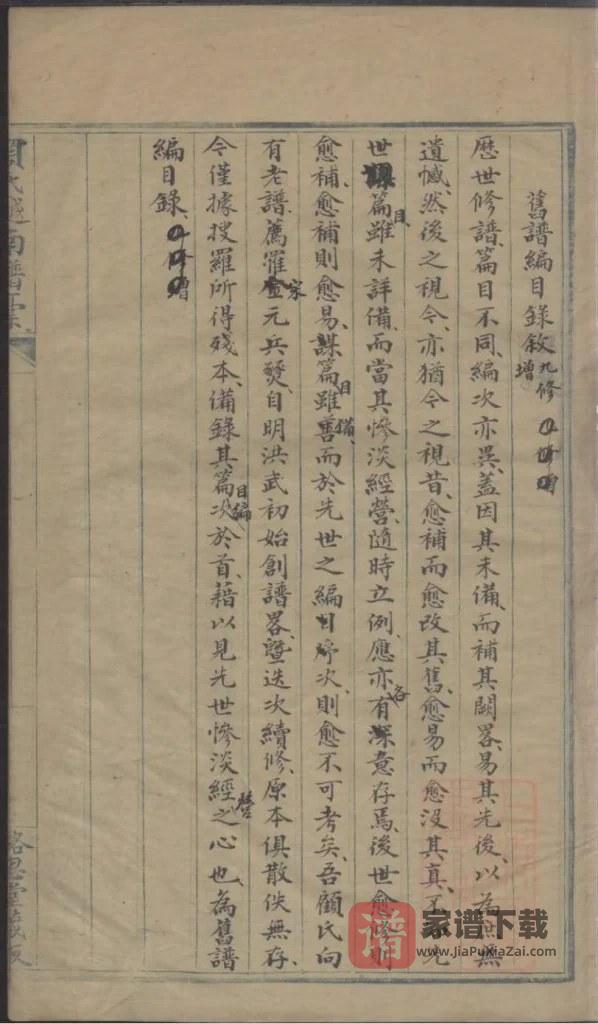 舊譜編目錄敘 九修增
歷世修譜、篇目不同、編次亦異、蓋因其未備、而補其闕畧、易其先後、以為無
遺憾、然後之視今、亦猶今之視昔、愈補而愈改其舊、愈易而愈沒其真、不
世篇目雖未詳備、而當其慘淡經營、隨時立例、應亦各有深意存焉、後世愈修則
愈補、愈補則愈易、謀篇目雖善備、而於先世之編目序次、則愈不可考矣、吾顧氏向
有老譜、薦罹宋元兵燹、自明洪武初始創譜畧、暨迭次續修、原本俱散佚無存、
今僅據搜羅所得殘本、備錄其篇目編次於首、藉以見先世慘淡經營之心也、為舊譜
編目錄、
南譜
譜 家谱下载
www.JiaPuXiaZai.com